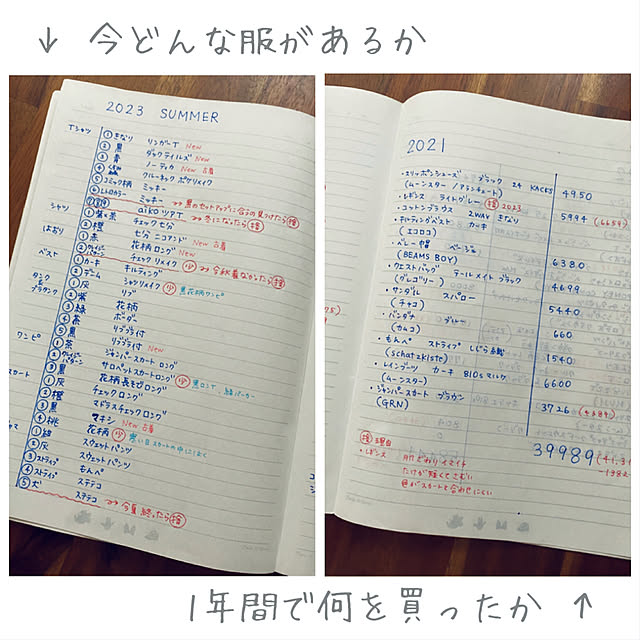 ↓ 今どんな服があるか
2023 SUMMER
Tシャツ ① きなり リンガーT New
② 黒 ダックテイルズ New
③ 青 ノーティカ New 古着
クルーネック ポケ リメイク
⑤ コミック柄 ミッキー
⑥ レトロカラー ミッキー
aikoツアT
シャツ ① 紫・茶 チェック七分
② 橙 七分 ニコアンド New 古着
はおり ① 赤 花柄ロング New
チェックリメイク 少
ベスト ① カーキ キルティング
② デニム シャツリメイク 少 黒花柄ワンピ
タンク & ブラタンク ① 灰 リブ
② 紫 花柄
③ 緑 ボーダー
④ 茶 リブブラ付
⑤ 黒 リブブラ付 New
ワンピ ① 茶 ジャンパースカートロング
サロペットスカートロング
③ 黒 花柄長そでロング 少
① 灰 チェックロング
② 橙 マドラスチェックロング
③ 黒 マキシ New 古着
④ 桃 花柄 少
① 緑 スウェットパンツ
② 灰 スウェットパンツ
③ ストライプ もんぺ
④ ストライプ ステテコ
⑤ 犬 ステテコ →今夏終ったら捨
スカート
2021
・スリッポンシューズ ブラック 24 KACKS 4950
(ムーンスター / アランチュート)
・レギンス ライトグレー 捨 2023 5994
・コットンブラウス 2WAY きなり
・キルティングベスト カーキ
(エコロコ)
・ベレー帽 6380
(BEAMS BOY)
・ウエストバッグ テールメイト ブラック 4699
(グレゴリー)
・サンダル スパロー 5440
(チャコ)
・バンダナ 660
(カムコ)
・もんぺ ストライプ しじら織 1540
(schatzkiste)
・レインブーツ カーキ 810s マルケ 6600
(ムーンスター)
・ジャンパースカート ブラウン 3726
(GRN)
39989
捨 理由
・レギンス 肌ざわりイマイチ
たけが短くてさむい
スカートと合わせにくい
1年間で何を買ったか ↑